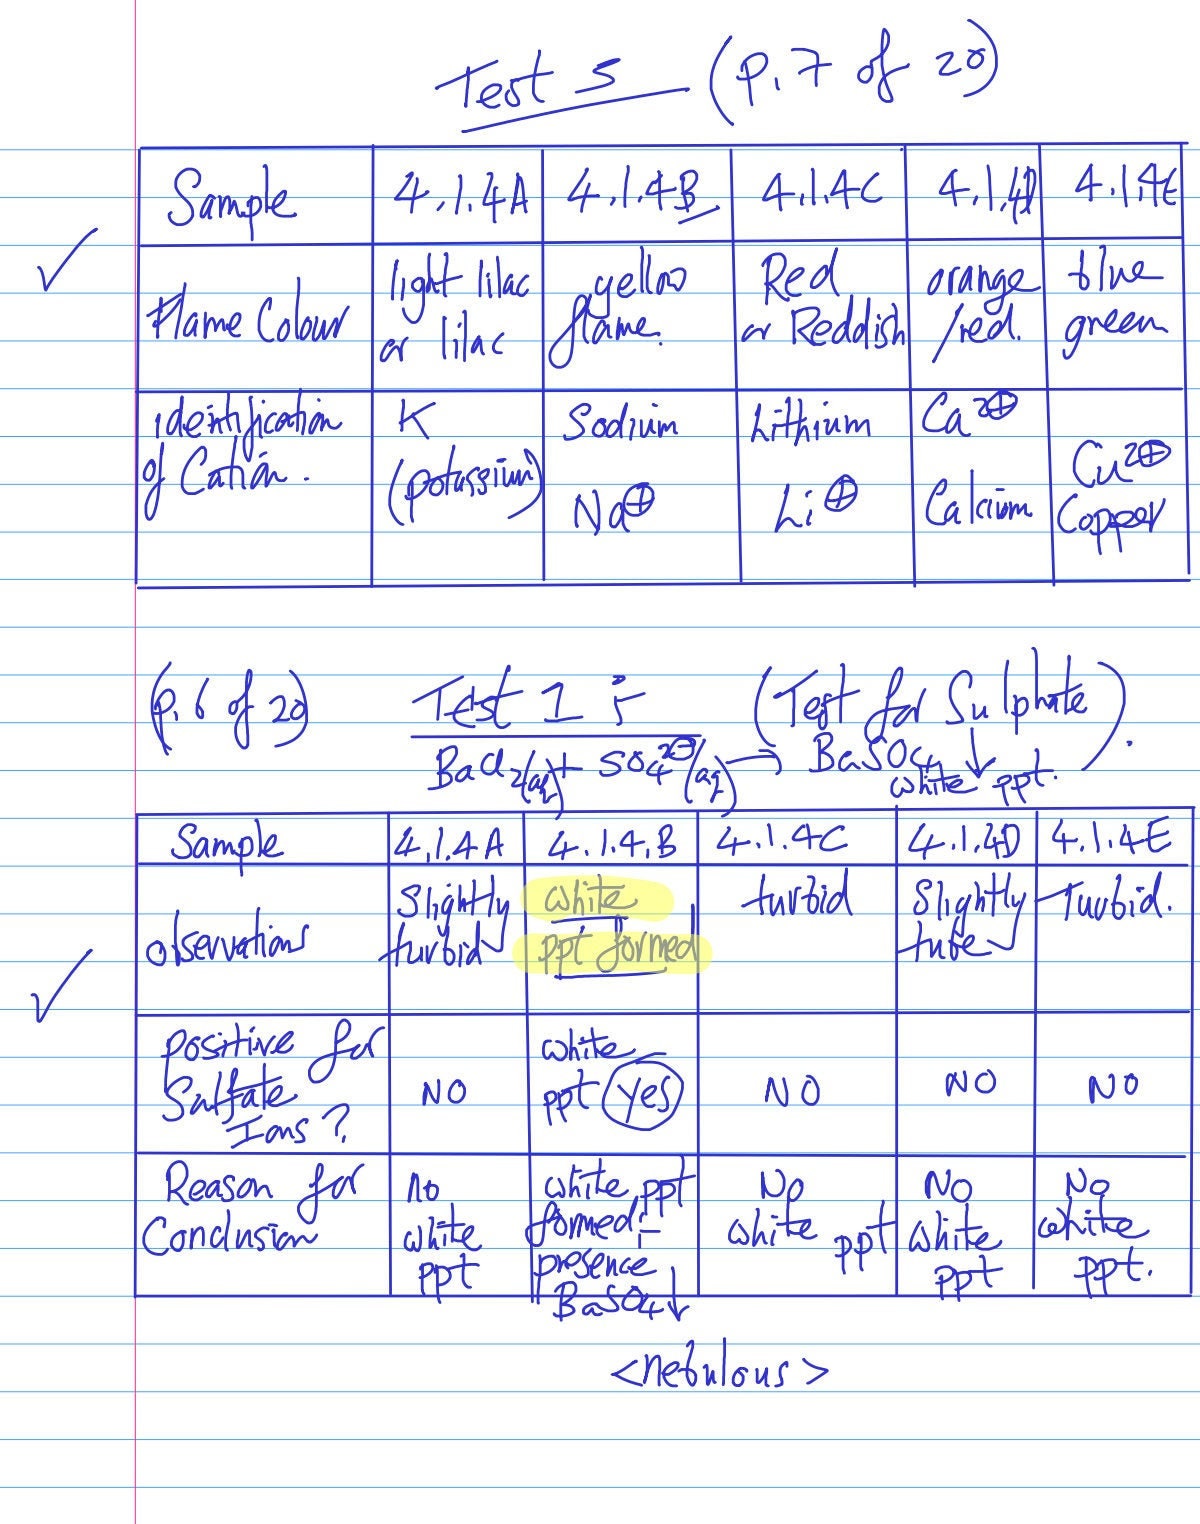 Test 5 (p.7 of 20)
Sample 4.1.4A 4.1.4B 4.1.4C 4.1.4D 4.1.4E
Flame Colour light lilac or lilac yellow flame. Red or Reddish orange /red. blue green
identification of Cation. K (potassium) Sodium Na⊕ Lithium Li⊕ Ca2⊕ Calcium Cu2⊕ Copper
(p.6 of 20) Test 1: (Test for Sulphate).
BaCl2(aq) + SO4 2⊖(aq) → BaSO4↓
white ppt.
Sample 4.1.4A 4.1.4.B 4.1.4C 4.1.4D 4.1.4E
observations Slightly turbid white ppt formed turbid Slightly Turbid.
Positive for Sulfate Ions? NO white ppt Yes NO NO NO
Reason for Conclusion no white ppt white ppt formed;- presence BaSO4↓ No white ppt No white ppt No white ppt.
<nebulous>